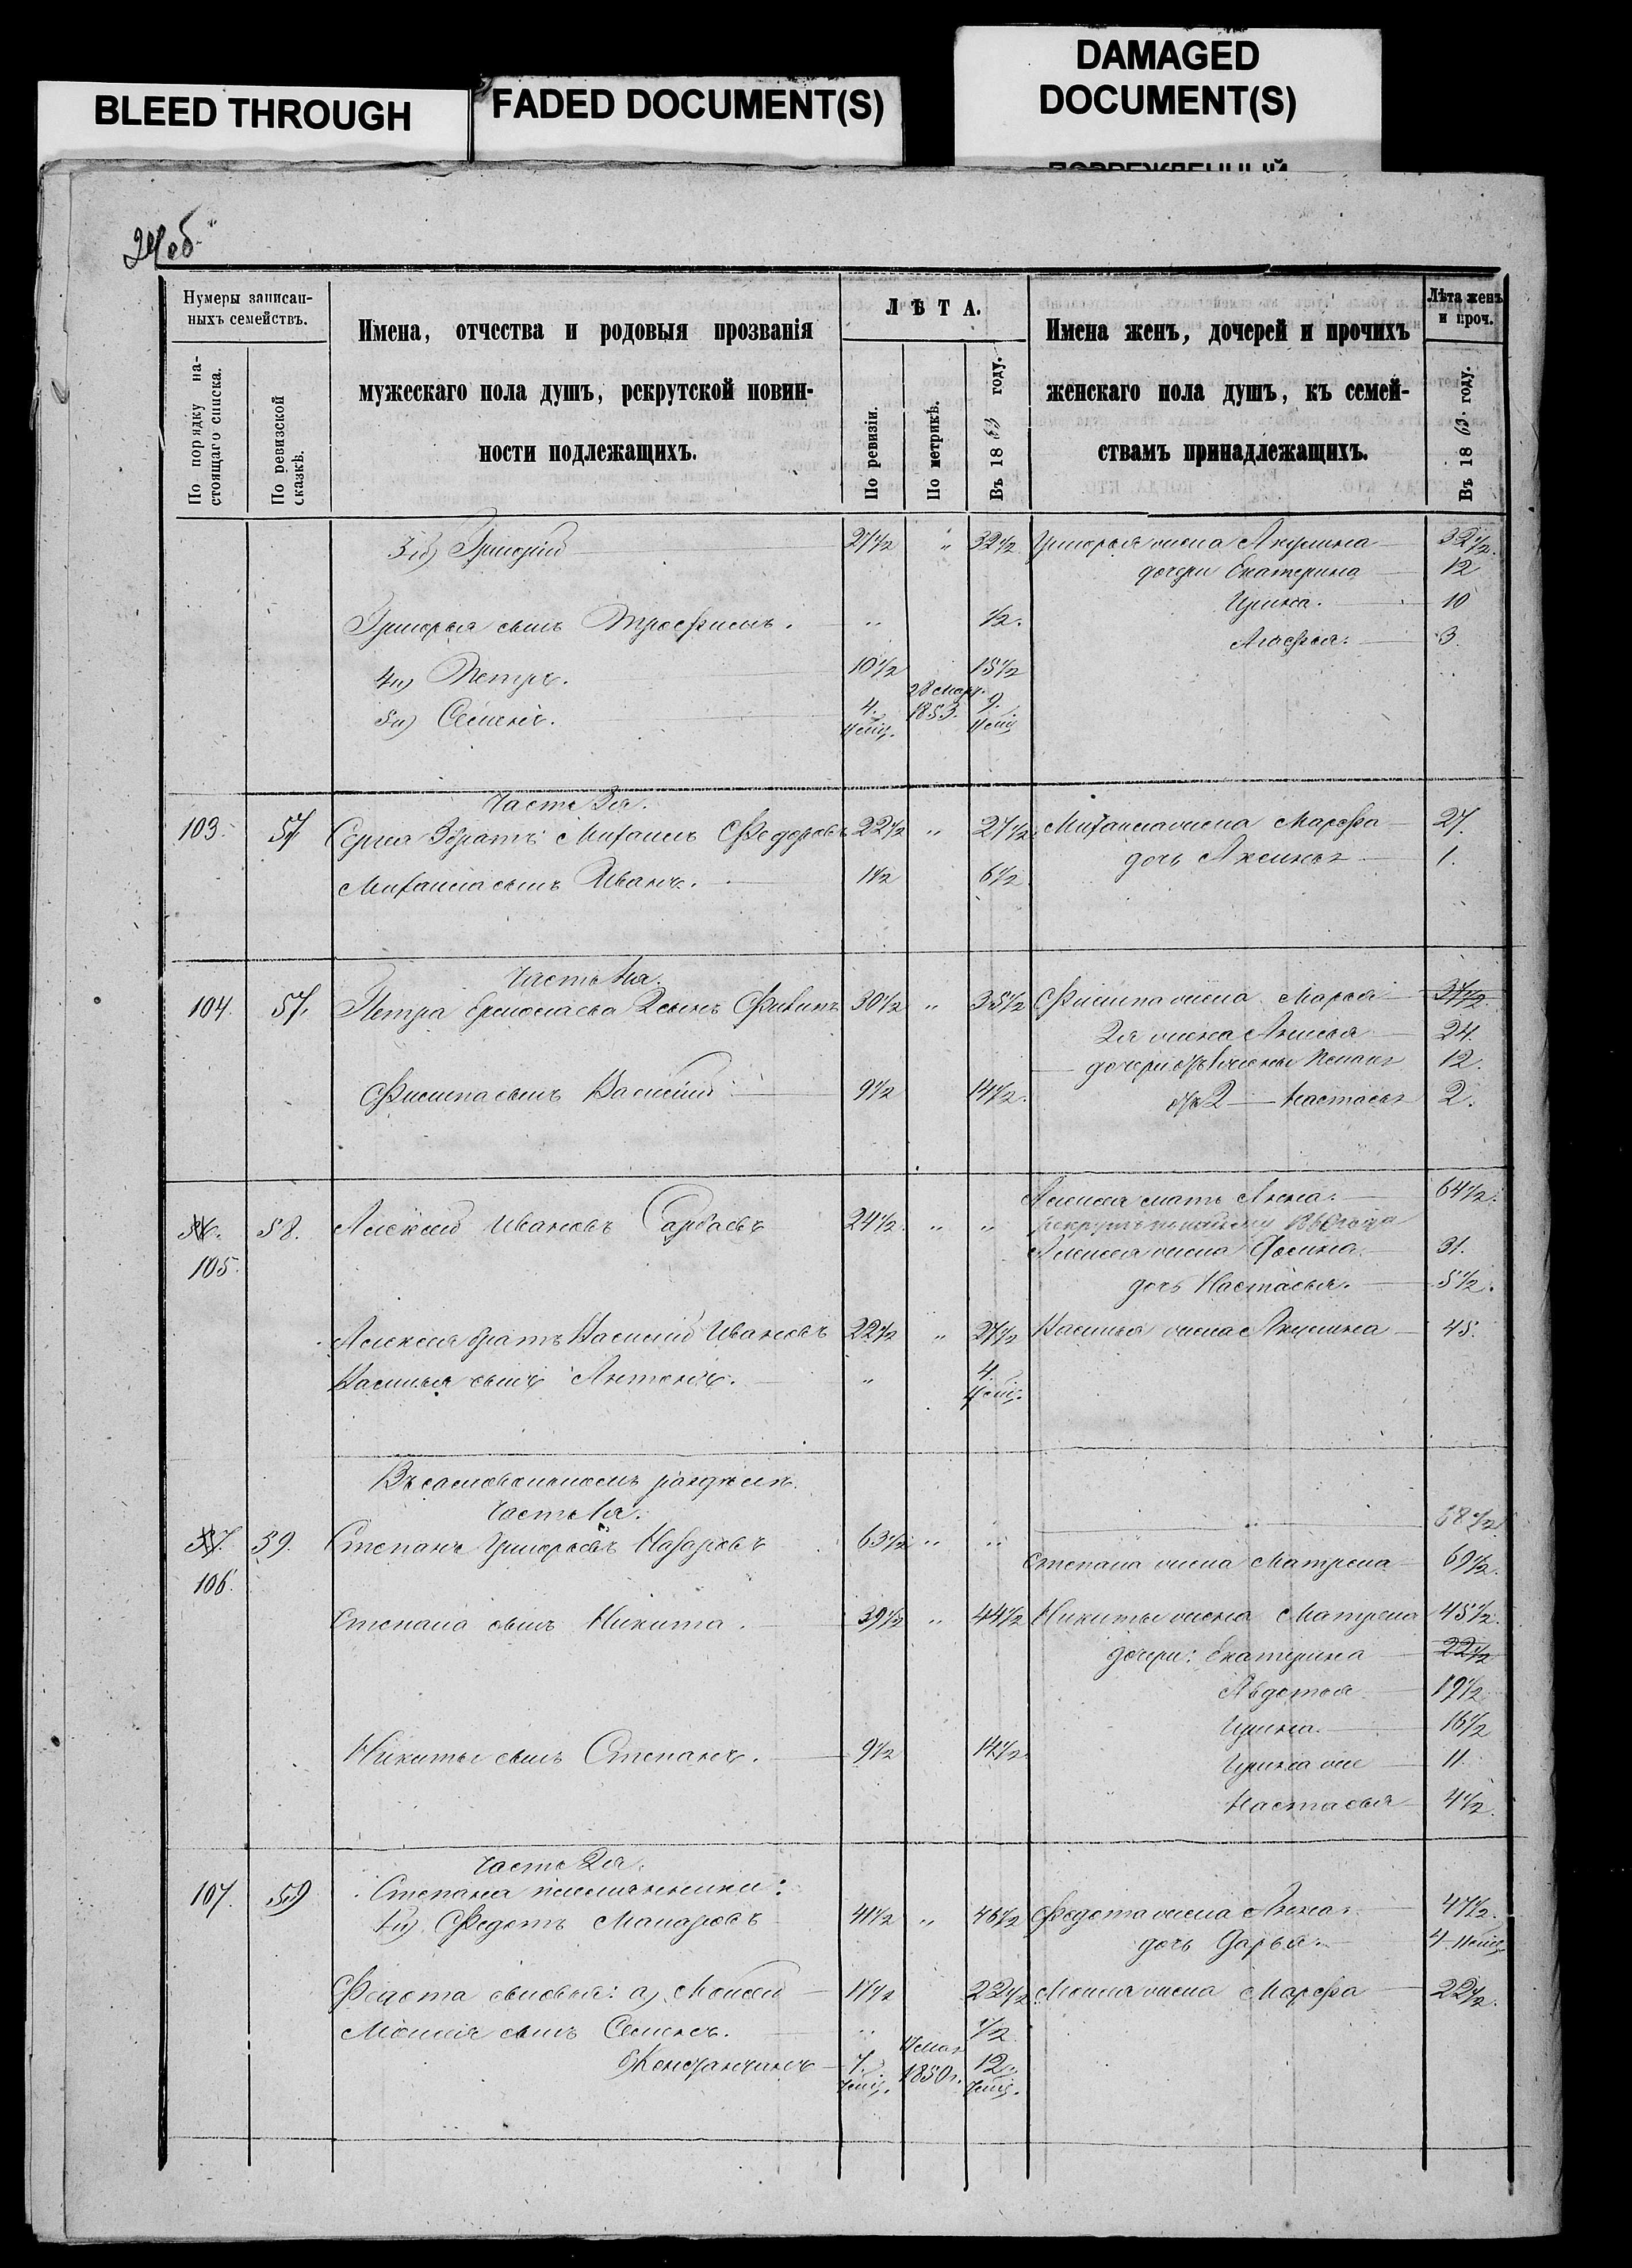 BLEED THROUGH
FADED DOCUMENT(S)
DAMAGED
DOCUMENT(S)
24 об.
Нумеры записан-
ныхъ семействъ.
По порядку на-
стоящаго списка.
По ревизской
сказкѣ.
Имена, отчества и родовыя прозванія
мужескаго пола душъ, рекрутской повин-
ности подлежащихъ.
ЛѢТА.
По ревизіи.
По метрикѣ.
Въ 1863 году.
Имена женъ, дочерей и прочихъ
женскаго пола душъ, къ семей-
ствамъ принадлежащихъ.
Лѣта женъ
и проч.
Въ 1863 году.
3й) Григорій 27½ " 32½ Григорья жена Акулина 32½.
дочери Екатерина 12
Ирина. 10
Григорья сынъ Трофимъ. " ½.
Агафья. 3.
4й) Петръ. 10½ 15½
5й) Семенъ. 4. 28 март. 1853. 9.
Часть 3я.
103. 57 Сергѣя 3 братъ Михаилъ Федоровъ 22½ " 27½ Михаила жена Марфа 27.
дочь Аксинья 1.
Михаила сынъ Иванъ. 1½ 6½
Часть 4я.
104. 57. Петра Ермолаева 2 сынъ Филипъ 30½ " 35½ Филипа жена Марья 37½
2я жена Анисья 24.
дочери отъ 1 жены 12.
Филипа сынъ Василій 9½ 14½. отъ 2 Настасья 2.
Алексѣя мать Анна. 64½.
58. Алексѣй Ивановъ 24½ " "
105.
Алексѣя жена 31.
дочь Настасья. 5½.
Алексѣя братъ Василій Ивановъ 22½ " 27½ Василья жена Акулина 45.
Василья сынъ Антонъ. " 4
Въ самовольномъ раздѣлѣ.
Часть 1я.
57. 59. Степанъ Григорьевъ 63½ " " 68½
106. Степана жена Матрена 69½.
Степана сынъ Никита. 39½ " 44½ Никиты жена Матрена 45½.
дочери: Екатерина 22½
Авдотья 19½
Ирина. 16½
Никиты сынъ Степанъ. 9½ 14½. Ирина же 11.
Настасья 4½.
Часть 2я.
107. 59 Степана племянники:
1й) Федотъ 41½ " 46½ Федота жена Анна 47½.
дочь Дарья. 4
Федота сыновья: а) Моисей 17½ 22½ Моисея жена Марфа 22½.
Моисея сынъ Семенъ. " ½
б) Константинъ 7. 1850 г. 12